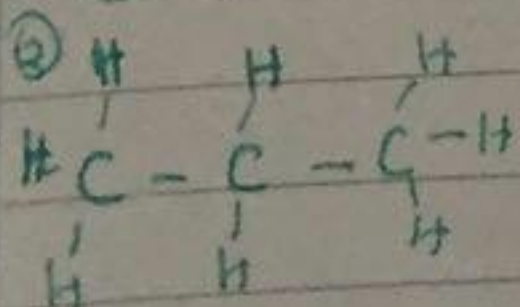 ② H H H
H C - C - C - H
H H H